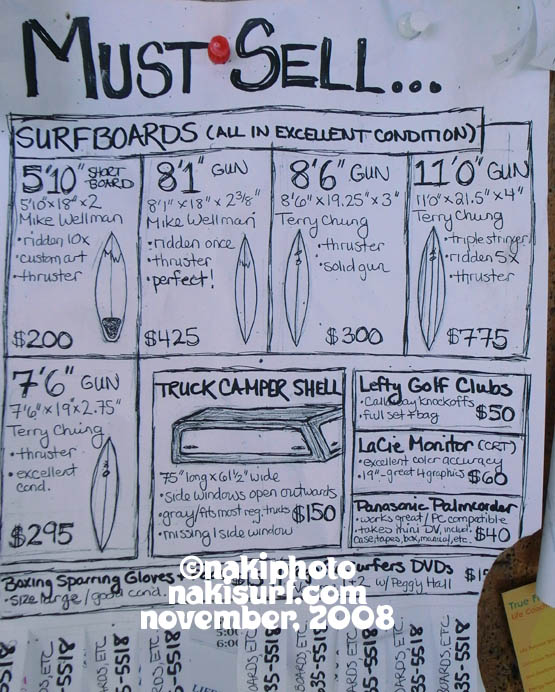 MUST SELL...
SURFBOARDS (ALL IN EXCELLENT CONDITION)
5'10" SHORT BOARD
5'10"x18"x2
Mike Wellman
• ridden 10x
• custom art
• thruster
$200
8'1" GUN
8'1"x18"x2 3/8"
Mike Wellman
• ridden once
• thruster
• perfect!
$425
8'6" GUN
8'6"x19.25"x3"
Terry Chung
• thruster
• solid gun
$300
11'0" GUN
11'0"x21.5"x4"
Terry Chung
• triple stringer
• ridden 5x
• thruster
$775
7'6" GUN
7'6"x19"x2.75"
Terry Chung
• thruster
• excellent
cond.
$295
TRUCK CAMPER SHELL
75" long x 61 1/2" wide
• side windows open outwards
• gray/fits most reg. trucks $150
• missing 1 side window
Lefty Golf Clubs
• Callaway knockoffs
• full set + bag $50
LaCie Monitor (CRT)
• excellent color accuracy
• 19" - great 4 graphics $60
Panasonic Palmcorder
• works great/PC compatible
• takes mini DV, includ.
case, tapes, box, manual, etc. $40
Boxing Sparring Gloves
• size large / good cond.
Surfers DVDs
1+2 w/ Peggy Hall
©nakiphoto
nakisurf.com
november, 2008
BOARDS, ETC
635-5518
True F
Life Coac